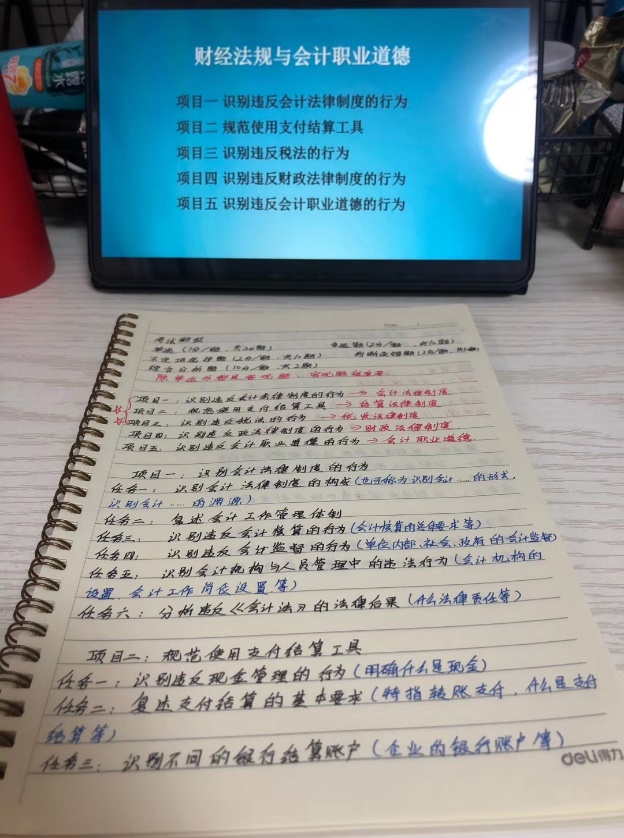 财经法规与会计职业道德
项目一 识别违反会计法律制度的行为
项目二 规范使用支付结算工具
项目三 识别违反税法的行为
项目四 识别违反财政法律制度的行为
项目五 识别违反会计职业道德的行为
考试题型
单选（1分/题，共20题） 多选题（2分/题，共10题）
不定项选择题（2分/题，共10题） 判断改错题
综合分析题（10分/题，共2题）
项目一：识别违反会计法律制度的行为→会计法律制度
项目二：规范使用支付结算工具→结算法律制度
项目三：识别违反税法的行为→税收法律制度
项目四：识别违反财政法律制度的行为→财政法律制度
项目五：识别违反会计职业道德的行为→会计职业道德
项目一：识别会计法律制度的行为
任务一：识别会计法律制度的构成（也可称为识别会计……的形式，
识别会计……的渊源）
任务二：复述会计工作管理体制
任务三：识别违反会计核算的行为（会计核算的总体要求等）
任务四：识别违反会计监督的行为（单位内部、社会、政府的会计监督）
任务五：识别会计机构与人员管理中的违法行为（会计机构的
设置、会计工作岗位设置等）
任务六：分析违反《会计法》的法律后果（什么法律责任等）
项目二：规范使用支付结算工具
任务一：识别违反现金管理的行为（明确什么是现金）
任务二：复述支付结算的基本要求（特指转账支付，什么是支付
结算等）
任务三：识别不同的银行结算账户（企业的银行账户等）
deli得力